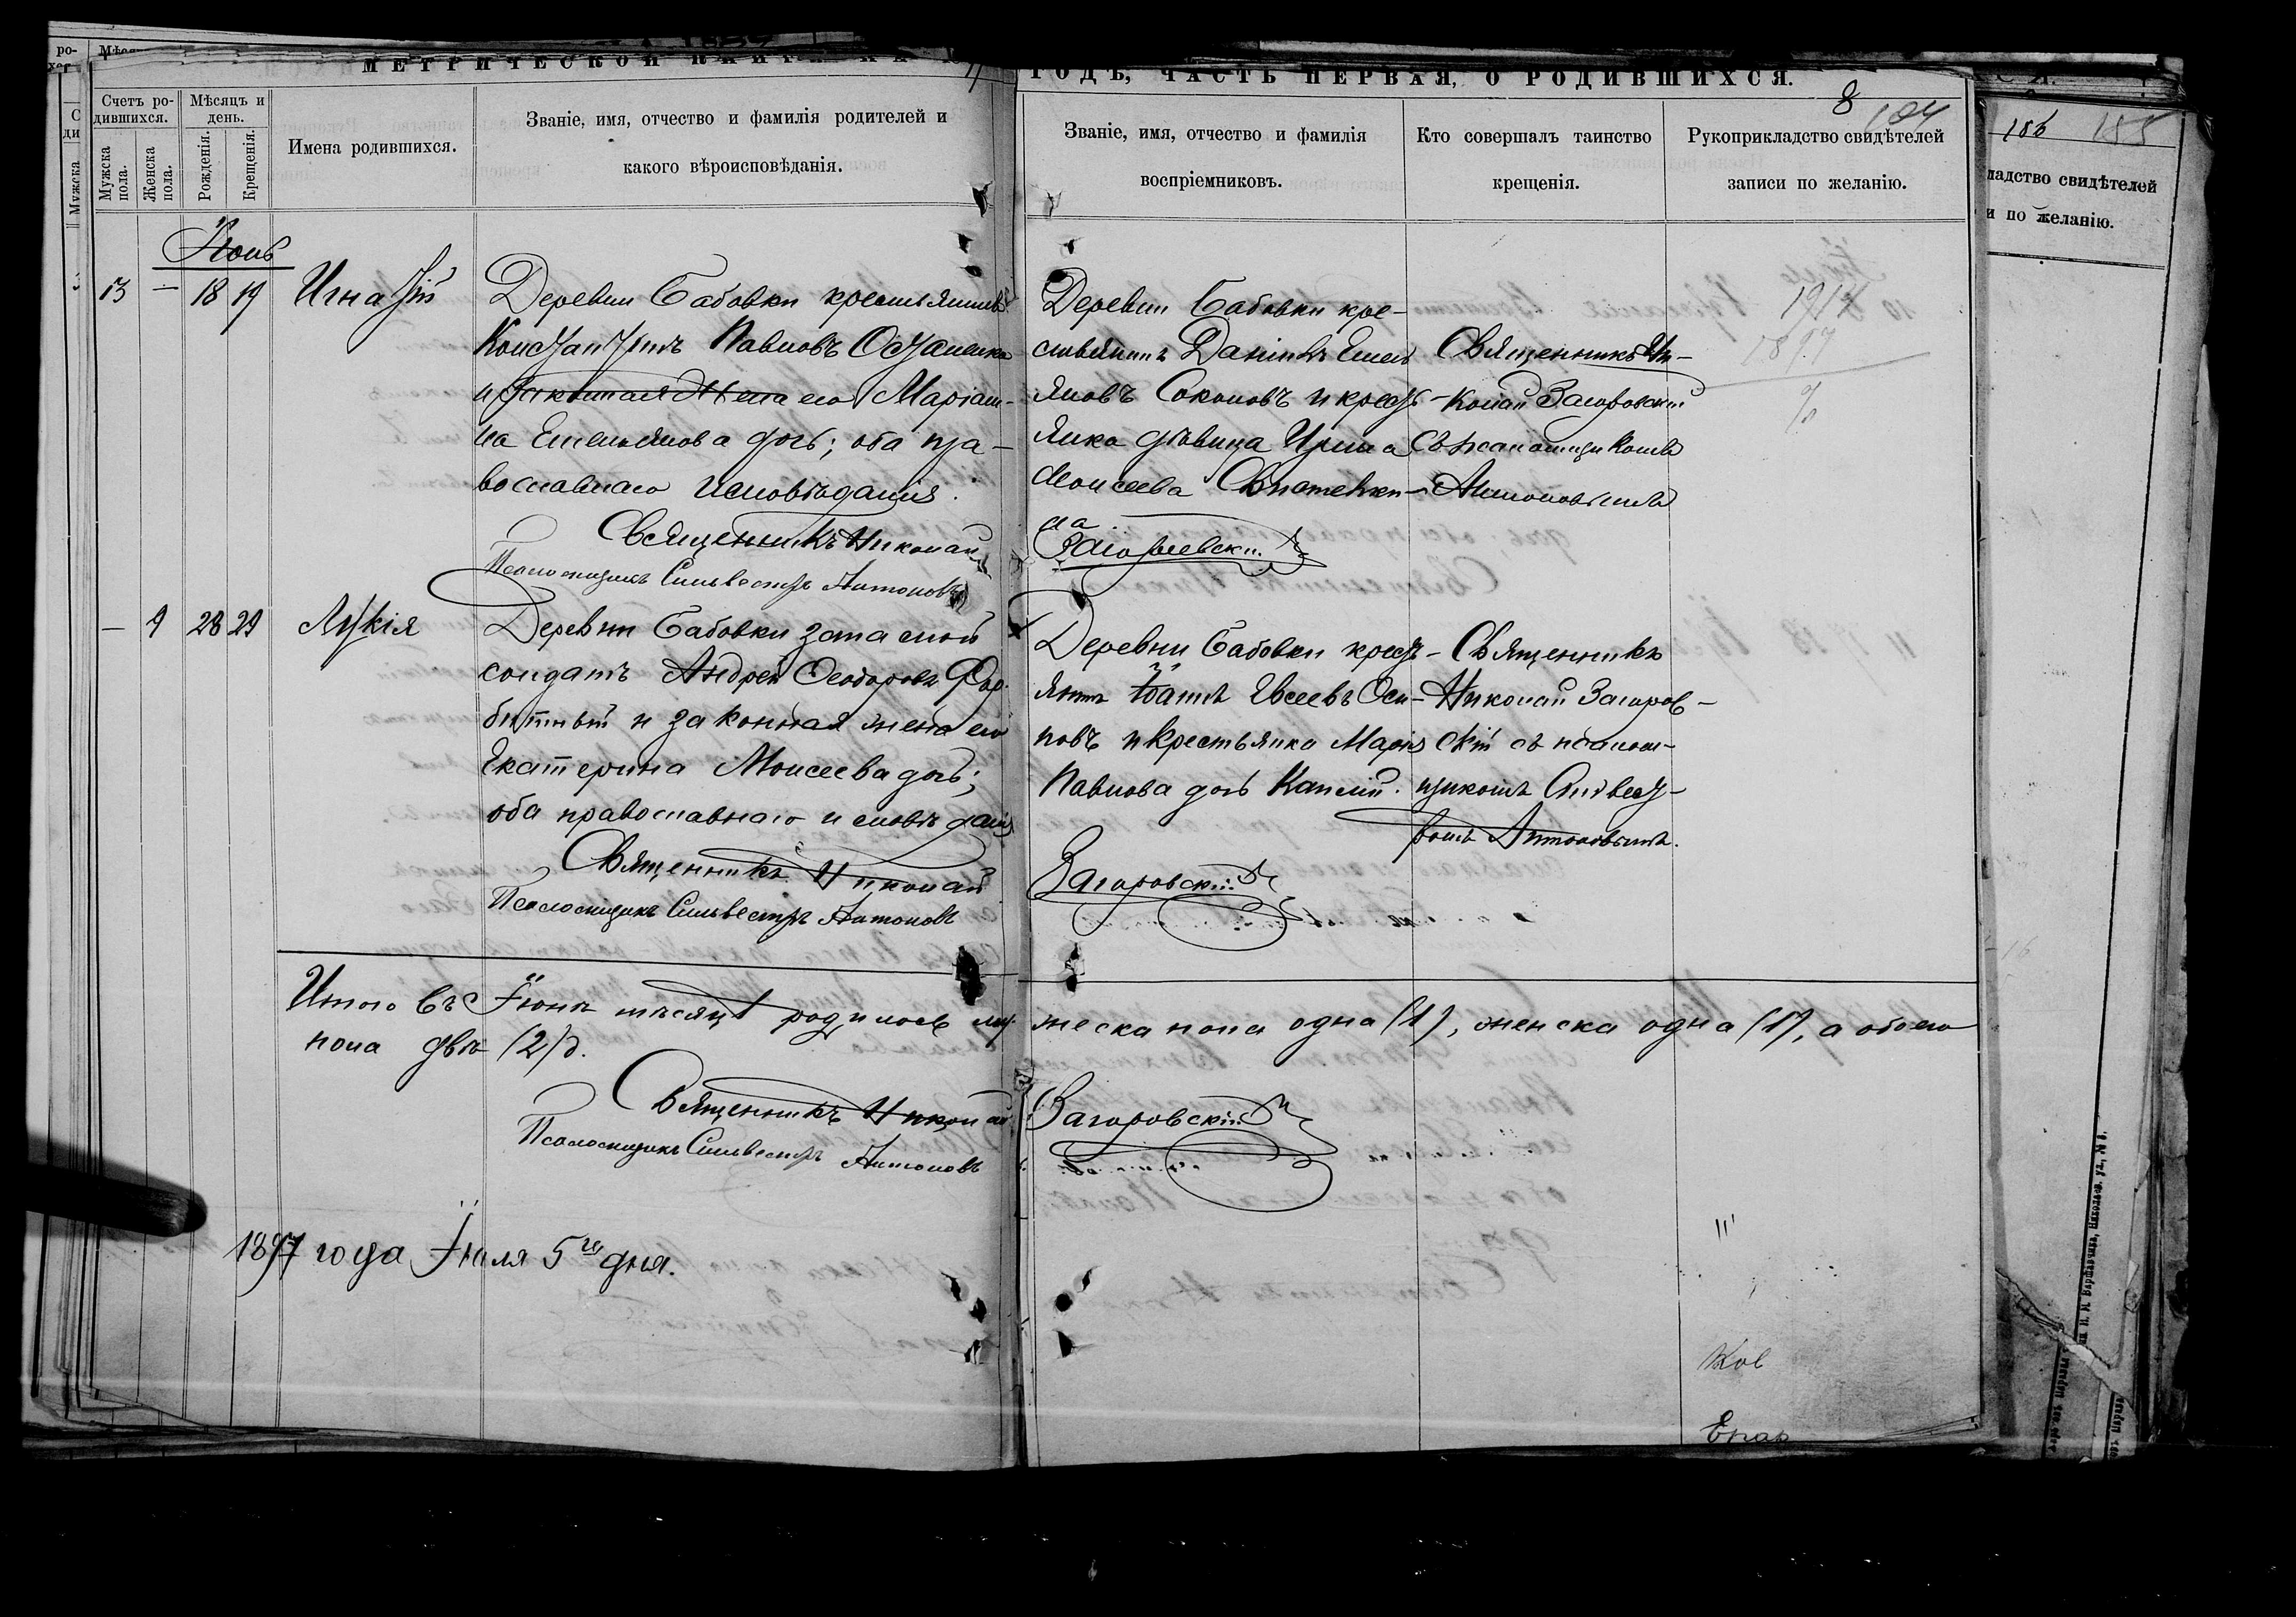 МЕТРИЧЕСКОЙ КНИГИ НА
Счетъ ро-
дившихся.
Мѣсяцъ и
день.
Мужска
пола.
Женска
пола.
Рожденія.
Крещенія.
Имена родившихся.
Званіе, имя, отчество и фамилія родителей и
какого вѣроисповѣданія.
Іюнь
13 — 18 19 Игнатій
Деревни Бабовки крестьянинъ
Константинъ Павловъ Остапенко
и законная жена его Маріам-
на Емельянова дочь; оба пра-
вославнаго исповѣданія.
Священникъ Николай
Псаломщикъ Сильвестръ Антоновъ
— 9 28 29 Лукія
Деревни Бабовки запасной
солдатъ Андрей Ѳеодоровъ
и законная жена его
Екатерина Моисеева дочь;
оба православнаго исповѣданія
Священникъ Николай
Псаломщикъ Сильвестръ Антоновъ
Итого въ Іюнѣ мѣсяцѣ родилось му-
пола двѣ (2) д.
Священникъ Николай
Псаломщикъ Сильвестръ Антоновъ
1897 года Іюля 5го дня.
ГОДЪ, ЧАСТЬ ПЕРВАЯ, О РОДИВШИХСЯ.
8
184
Званіе, имя, отчество и фамилія
воспріемниковъ.
Кто совершалъ таинство
крещенія.
Рукоприкладство свидѣтелей
записи по желанію.
Деревни Бабовки кре-
стьянинъ Даніилъ Емель
яновъ Соколовъ и кресть-
янка дѣвица Ирина
Моисеева
на
Загоровскій
Священникъ Ни-
колай Загоровскій
съ псаломщикомъ
Антоновымъ
1897
Деревни Бабовки кресть-
янинъ Іоаннъ Евсеевъ Оси-
повъ и крестьянка Марія
Павлова дочь
Загоровскій
Священникъ
Николай Загоров-
скій съ псалом-
щикомъ Сильвест-
ромъ Антоновымъ.
жеска пола одна (1), женска одна (1), а обоего
Загоровскій
Ков
186 185
ладство свидѣтелей
и по желанію.